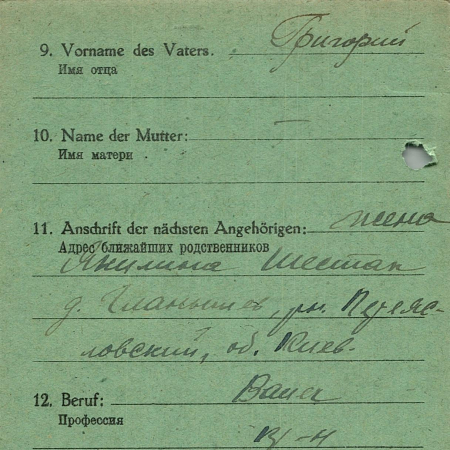 9. Vorname des Vaters. Григорий
Имя отца
10. Name der Mutter: —
Имя матери
11. Anschrift der nächsten Angehörigen: жена
Адрес ближайших родственников
Акилина Шестак
д. рн. Переяс-
ловский, об. Киев-
12. Beruf: Bauer
Профессия